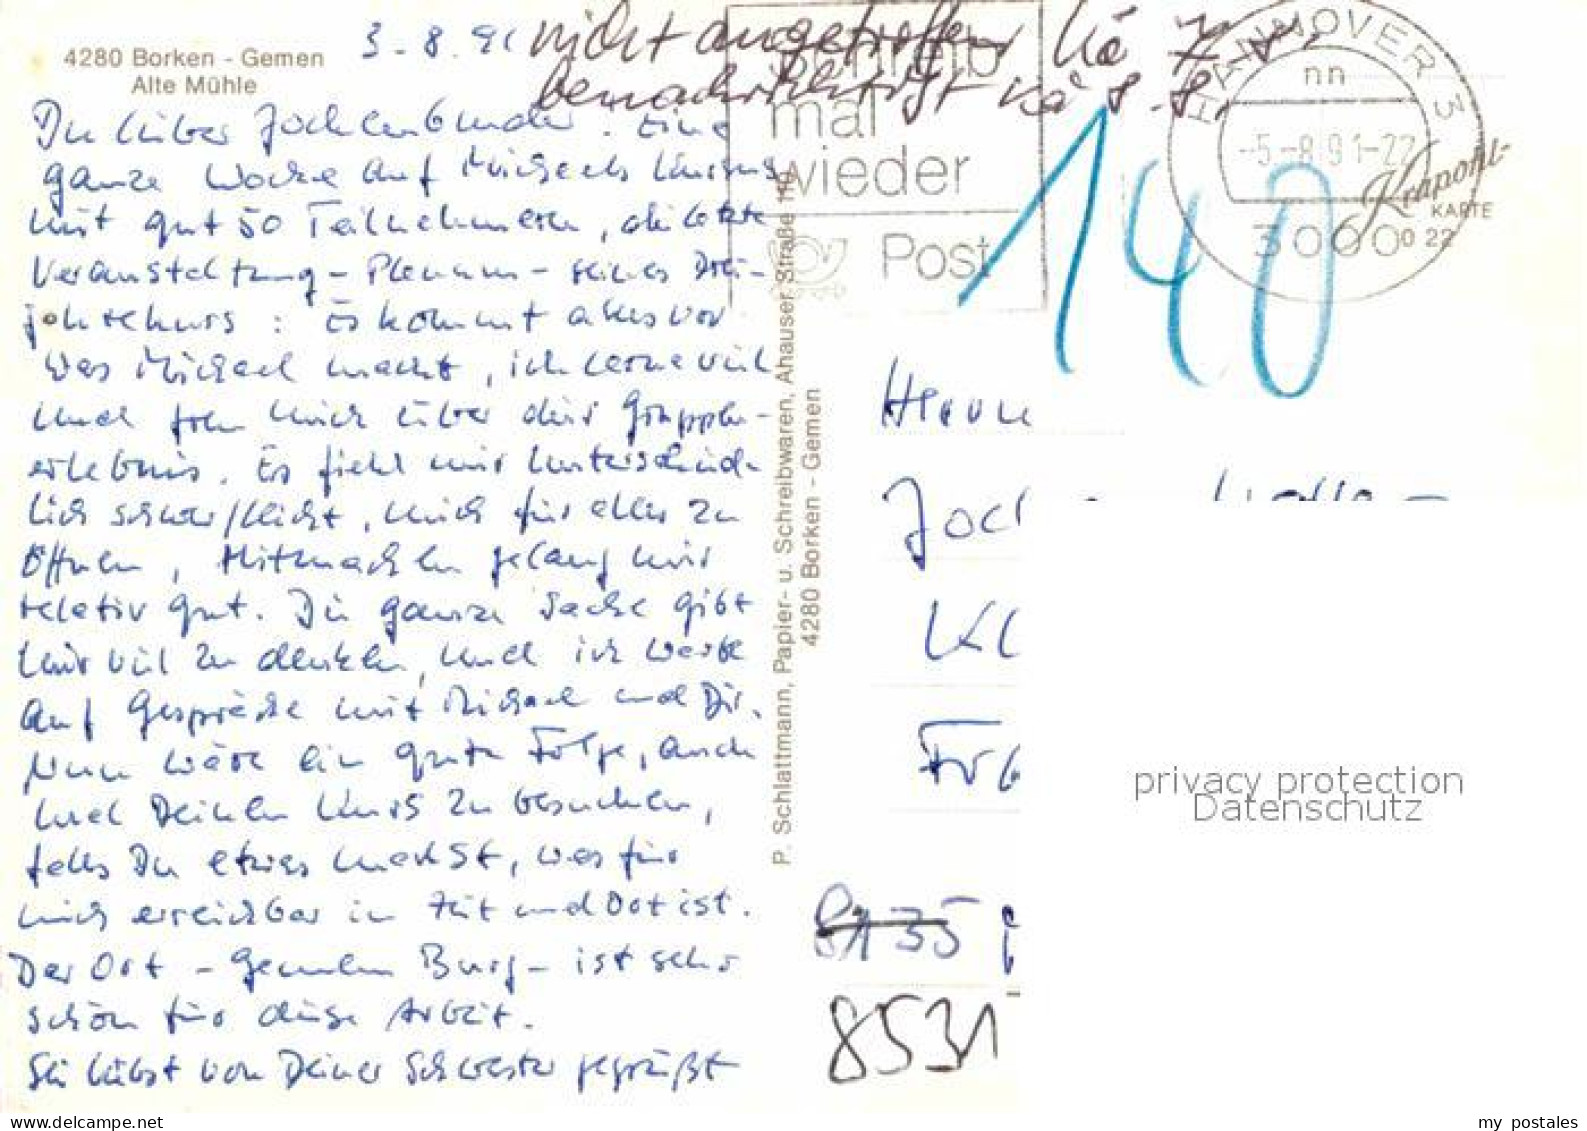 4280 Borken - Gemen
Alte Mühle
3.8.91
nicht angetroffen Kö 7.8.
benachrichtigt Kö 8.8.
Schreib
mal
wieder
Post
HANNOVER 3
nn
-5.-8.91-22
3000
Krapohl-
KARTE
0 22
140
Du lieber Jochenbruder. Eine
ganze Woche auf Michaels Kursus
mit gut 50 Teilnehmern, die letzte
Veranstaltung - Plenum - seines Drei-
jahrekurs: Es kommt alles vor
was Michael macht, ich lerne viel
und freu mich über dies Gruppen-
erlebnis. Es fiel mir unterschied-
lich schwer/leicht, mich für alles zu
öffnen, Mitmachen gelang mir
relativ gut. Die ganze Sache gibt
mir viel zu denken, und ich warte
auf Gespräche mit Michael und Dir.
Nun wäre ein gute Folge, auch
mal Deinen Kurs zu besuchen,
falls Du etwas machst, was für
mich erreichbar in Zeit und Ort ist.
Der Ort - Gemen Burg - ist sehr
schön für diese Arbeit.
Sei liebst von Deiner Schwester gegrüßt
P. Schlattmann, Papier- u. Schreibwaren, Ahauser Straße
4280 Borken - Gemen
Herrn
Joc
Kl
8135
8531
privacy protection
Datenschutz
delcampe.net
my postales